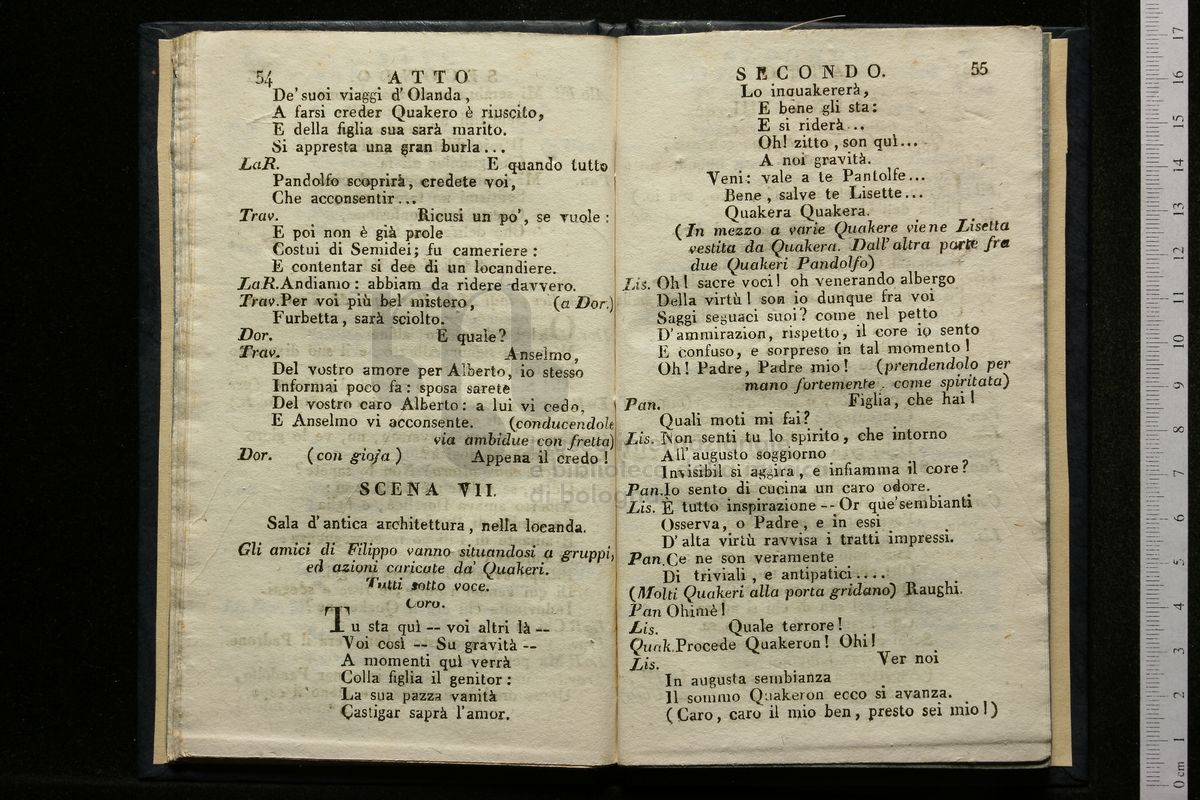 54 ATTO
De' suoi viaggi d' Olanda,
A farsi creder Quakero è riuscito,
E della figlia sua sarà marito.
Si appresta una gran burla...
LaR. E quando tutto
Pandolfo scoprirà, credete voi,
Che acconsentir...
Trav. Ricusi un po', se vuole:
E poi non è già prole
Costui di Semidei; fu cameriere:
E contentar si dee di un locandiere.
LaR. Andiamo: abbiam da ridere davvero.
Trav. Per voi più bel mistero, (a Dor.)
Furbetta, sarà sciolto.
Dor. E quale?
Trav. Anselmo,
Del vostro amore per Alberto, io stesso
Informai poco fa: sposa sarete
Del vostro caro Alberto: a lui vi cedo,
E Anselmo vi acconsente. (conducendole
via ambidue con fretta)
Dor. (con gioja) Appena il credo!
SCENA VII.
Sala d'antica architettura, nella locanda.
Gli amici di Filippo vanno situandosi a gruppi,
ed azioni caricate da' Quakeri.
Tutti sotto voce.
Coro.
Tu sta quì -- voi altri là --
Voi così -- Su gravità --
A momenti quì verrà
Colla figlia il genitor:
La sua pazza vanità
Castigar saprà l'amor.
SECONDO. 55
Lo inquakererà,
E bene gli sta:
E si riderà...
Oh! zitto, son quì...
A noi gravità.
Veni: vale a te Pantolfe...
Bene, salve te Lisette...
Quakera Quakera.
(In mezzo a varie Quakere viene Lisetta
vestita da Quakera. Dall' altra parte fra
due Quakeri Pandolfo)
Lis. Oh! sacre voci! oh venerando albergo
Della virtù! son io dunque fra voi
Saggi seguaci suoi? come nel petto
D'ammirazion, rispetto, il core io sento
E confuso, e sorpreso in tal momento!
Oh! Padre, Padre mio! (prendendolo per
mano fortemente, come spiritata)
Pan. Figlia, che hai!
Quali moti mi fai?
Lis. Non senti tu lo spirito, che intorno
All' augusto soggiorno
Invisibil si aggira, e infiamma il core?
Pan. Io sento di cucina un caro odore.
Lis. È tutto inspirazione -- Or que' sembianti
Osserva, o Padre, e in essi
D' alta virtù ravvisa i tratti impressi.
Pan. Ce ne son veramente
Di triviali, e antipatici....
(Molti Quakeri alla porta gridano) Raughi.
Pan Ohimè!
Lis. Quale terrore!
Quak. Procede Quakeron! Ohi!
Lis. Ver noi
In augusta sembianza
Il sommo Quakeron ecco si avanza.
(Caro, caro il mio ben, presto sei mio!)